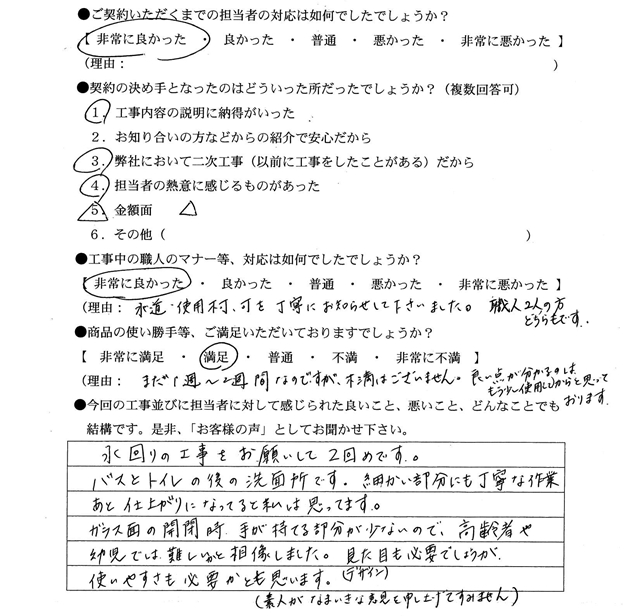 ●ご契約いただくまでの担当者の対応は如何でしたでしょうか?
【 非常に良かった ・ 良かった ・ 普通 ・ 悪かった ・ 非常に悪かった 】
(理由: )
●契約の決め手となったのはどういった所だったでしょうか?(複数回答可)
1.工事内容の説明に納得がいった
2.お知り合いの方などからの紹介で安心だから
3.弊社において二次工事(以前に工事をしたことがある)だから
4.担当者の熱意に感じるものがあった
5.金額面 △
6.その他( )
●工事中の職人のマナー等、対応は如何でしたでしょうか?
【 非常に良かった ・ 良かった ・ 普通 ・ 悪かった ・ 非常に悪かった 】
(理由: 水道・使用 を丁寧にお知らせして下さいました。 職人2人の方
どちらもです.
●商品の使い勝手等、ご満足いただいておりますでしょうか?
【 非常に満足 ・ 満足 ・ 普通 ・ 不満 ・ 非常に不満 】
(理由: まだ1週〜2週間なのですが、不満はございません。 良い点が分かるのは、
もう少し使用してからと思って
おります.
●今回の工事並びに担当者に対して感じられた良いこと、悪いこと、どんなことでも
結構です。是非、「お客様の声」としてお聞かせ下さい。
水回りの工事をお願いして2回めです。
バスとトイレの後の洗面所です。細かい部分にも丁寧な作業
あと仕上がりになってると私は思ってます。
ガラス面の開閉時 手が持てる部分が少ないので、高齢者や
幼児では難しいかと想像しました。見た目も必要でしょうが、
(デザイン)
使いやすさも必要かとも思います。
(素人がなまいきな意見を申し上げてすみません)